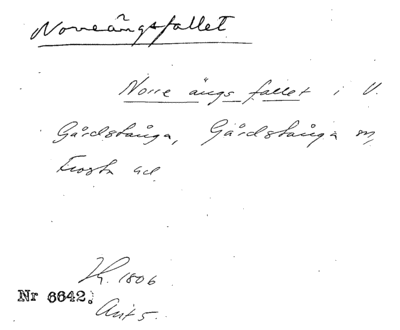 Norreängsfallet
Norre ängs fallet i V.
Gårdstånga, Gårdstånga sn,
Frosta hd
1806
Nr 6642.
Akt 5.